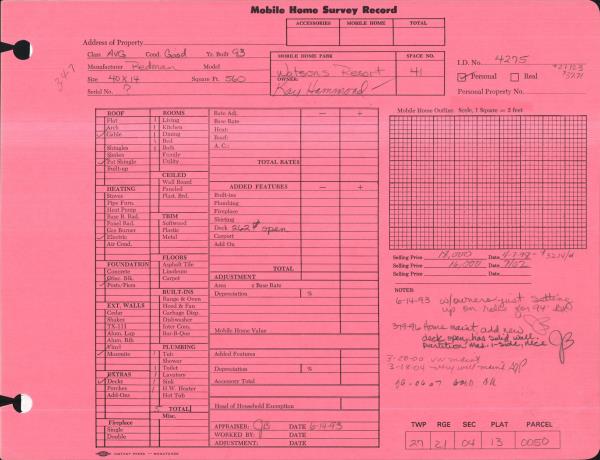 Mobile Home Survey Record
ACCESSORIES MOBILE HOME TOTAL
Address of Property
Class AVG Cond. Good Yr. Built 93
Manufacturer Redman Model
Size 40X14 Square Ft. 560
Serial No. ?
347
MOBILE HOME PARK SPACE NO.
Watsons Resort 41
OWNER:
Kay Hammond
I.D. No. 4275
Personal Real
Personal Property No.
ROOF
Flat
Arch
Gable
Shingles
Shakes
Pat Shingle
Built-up
HEATING
Stoves
Pipe Furn.
Heat Pump
Base B. Rad.
Panel Rad.
Gas Burner
Electric
Air Cond.
FOUNDATION
Concrete
Othr. Blk.
Posts/Piers
EXT. WALLS
Cedar
Shakes
TX-111
Alum. Lap
Alum. Blk
Vinyl
Masonite
EXTRAS
Decks
Porches
Add-Ons
Fireplace
Single
Double
ROOMS
1 Living
1 Kitchen
Dining
1 Bed
1 Bath
Family
Utility
CEILED
Wall Board
Paneled
Plast. Brd.
TRIM
Softwood
Plastic
Metal
FLOORS
Asphalt Tile
Linoleum
Carpet
BUILT-INS
Range & Oven
Hood & Fan
Garbage Disp.
Dishwasher
Inter Com.
Bar-B-Que
PLUMBING
1 Tub
Shower
1 Toilet
1 Lavatory
1 Sink
1 H.W. Heater
Hot Tub
5 TOTAL
Misc.
Rate Adj. — +
Base Rate
Heat:
Roof:
A. C.:
TOTAL RATES
ADDED FEATURES — +
Built-ins
Plumbing
Fireplace
Skirting
Deck 262 # open
Carport
Add On
TOTAL
ADJUSTMENT
Area x Base Rate
Depreciation %
Mobile Home Value
Added Features
Depreciation %
Accessory Total
Head of Household Exemption
APPRAISER: JB DATE 6-14-93
WORKED BY: DATE
ADJUSTMENT: DATE
Mobile Home Outline Scale, 1 Square = 2 feet
Selling Price 18,000 Date
Selling Price 16,000 Date 9/02
NOTES:
6-14-93 w/owners just setting
up on
3-19-96 Home maint add new
deck open, has solid wall
partition 1-side, nice JB
3-28-00
3-18-04
TWP RGE SEC PLAT PARCEL
27 21 04 13 0050